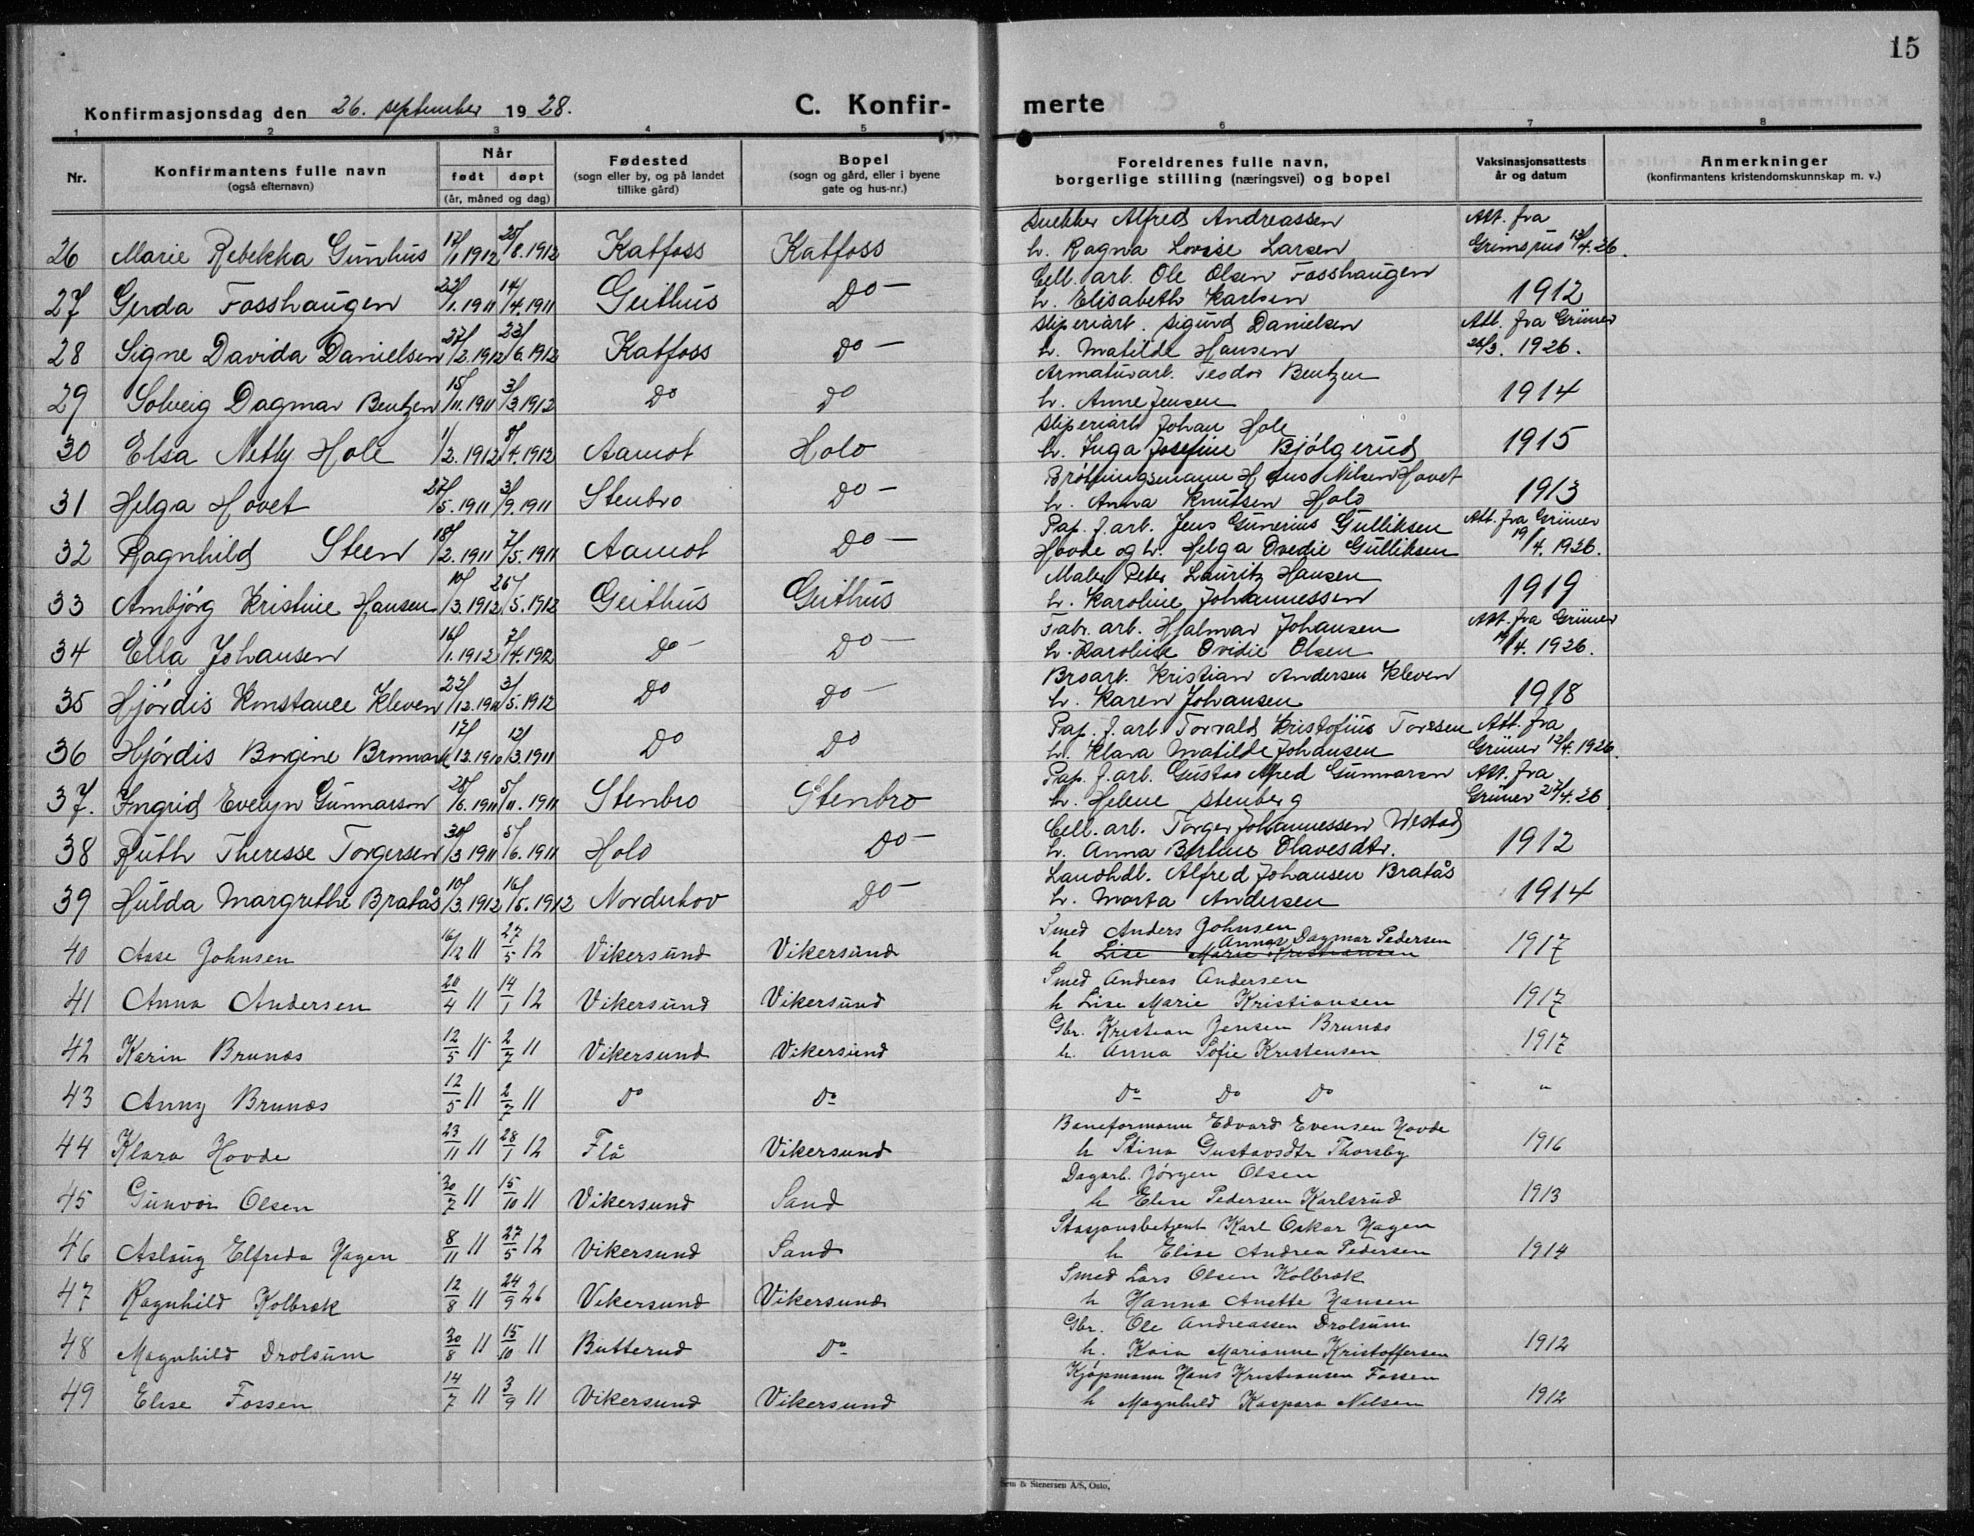 15
Konfirmasjonsdag den 26. september 1928. C. Konfir- merte
1 2 3 4 5 6 7 8
Nr. Konfirmantens fulle navn (også efternavn) Når født døpt (år, måned og dag) Fødested (sogn eller by, og på landet tillike gård) Bopel (sogn og gård, eller i byene gate og hus-nr.) Foreldrenes fulle navn, borgerlige stilling (næringsvei) og bopel Vaksinasjonsattests år og datum Anmerkninger (konfirmantens kristendomskunnskap m. v.)
Snekker Alfred Andreassen Att. fra
26 Marie Rebekka Gunhus 17/1 1912 25/8. 1912 Katfoss Katfoss h. Ragna Lovise Larsen 4. 26.
Cell. arb. Ole Olsen Fosshaugen
27 Gerda Fosshaugen 22/1. 1911 14/4. 1911 Geithus Do — h. Elisabeth Karlsen 1912
Sliperiarb. Sigurd Danielsen Att. fra Grüner
28 Signe Davida Danielsen 27/2. 1912 23/6. 1912 Katfoss Do — h. Matilde Hansen 26/3. 1926.
Armaturarb. Teodor Bentzen
29 Solveig Dagmar Bentzen 15/11. 1911 3/3. 1912 Do Do h. Anne Jensen 1914
Sliperiarb Johan Hole
30 Elsa Netly Hole 1/2. 1912 8/4. 1912 Aamot Holo h. Inga Josefine Bjølgerud 1915
Brøtningsmann Hans Nilsen Hovet
31 Helga Hovet 27/5. 1911 3/9. 1911 Stenbro Do — h. Anna Knutsen Holo 1913
Pap. f. arb. Jens Gunerius Gulliksen Att. fra Grüner
32 Ragnhild Steen 18/2. 1911 7/5. 1911 Aamot Do — Hovde og h. Helga Ovedie Gulliksen 19/4. 1926.
Maler Peter Lauritz Hansen
33 Ambjörg Kristine Hansen 10/3. 1912 26/5. 1912 Geithus Geithus h. Karoline Johannessen 1919
Fabr. arb. Hjalmar Johansen Att. fra Grüner
34 Ella Johansen 16/1. 1912 7/4. 1912 Do — Do — h. Karoline Ovidie Olsen 19/4. 1926.
Broarb. Kristian Andersen Kleven
35 Hjördis Konstance Kleven 22/12. 1911 3/5. 1912 Do Do — h. Karen Johansen 1918
Pap. f. arb Torvald Kristofius Toresen Att. fra
36 Hjördis Borgine Bromark 17/12. 1910 12/3. 1911 Do Do h. Klara Matilde Johansen Grüner 12/4. 1926
Pap. f. arb. Gustav Alfred Gunnarson Att. fra
37. Ingrid Evelyn Gunnarson 28/6. 1911 5/11. 1911 Stenbro Stenbro h. Helene Stenberg Grüner 27/4. 26
Cell. arb. Torger Johannessen Westad
38 Ruth Theresse Torgersen 30/3 1911 5/6. 1911 Holo Do — h. Anna Birthine Olavesdtr. 1912
Landhdl. Alfred Johansen Bratås
39 Hulda Margrethe Bratås 10/3. 1912 16/5. 1912 Norderhov Do — h. Marta Andersen 1914
Smed Anders Johnsen
Annas Dagmar Pedersen
40 Aase Johnsen 16/12 11 27/5 12 Vikersund Vikersund h Lise Marie Kristiansen 1917
Smed Andreas Andersen
41 Anna Andersen 20/4 11 14/1 12 Vikersund Vikersund h Lise Marie Kristiansen 1917
Gbr. Kristian Jensen Brunæs
42 Karin Brunæs 12/5 11 2/7 11 Vikersund Vikersund h. Anna Sofie Kristensen 1917
43 Anny Brunæs 12/5 11 2/7 11 Do Do Do Do Do "
Baneformann Edvard Evensen Hovde
44 Klara Hovde 23/11 11 28/1 12 Flå Vikersund h Stina Gustavsdtr Thorsby 1916
Dagarb. Jörgen Olsen
45 Gunvor Olsen 30/7 11 15/10 11 Vikersund Sand h Elise Pedersen Karlsrud 1913
Stasjonsbetjent Karl Oskar Hagen
46 Aslaug Elfreda Hagen 8/11 11 27/5 12 Vikersund Sand h Elise Andrea Pedersen 1914
Smed Lars Olsen Kolbræk
47 Ragnhild Kolbræk 12/8 11 24/9 26 Vikersund Vikersund h Hanna Anette Hansen
Gbr. Ole Andreassen Drolsum
48 Magnhild Drolsum 30/8 11 15/10 11 Butterud Do h. Kaia Marianne Kristoffersen 1912
Kjøpmann Hans Kristiansen Fossen
49 Elise Fossen 14/7 11 3/9 11 Vikersund Vikersund h Magnhild Kaspara Nilsen 1912
Sem & Stenersen A/S, Oslo,